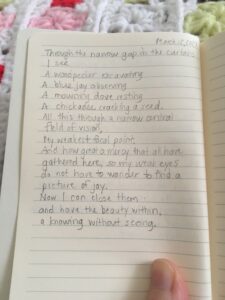 March 2, 2021
Through the narrow gap in the curtains
I see
A woodpecker excavating
A blue jay observing
A mourning dove resting
A chickadee cracking a seed.
All this through a narrow central
field of vision,
My weakest focal point.
And how great a mercy that all have
gathered here, so my weak eyes
do not have to wander to find a
picture of joy.
Now I can close them
and have the beauty within,
a knowing without seeing.